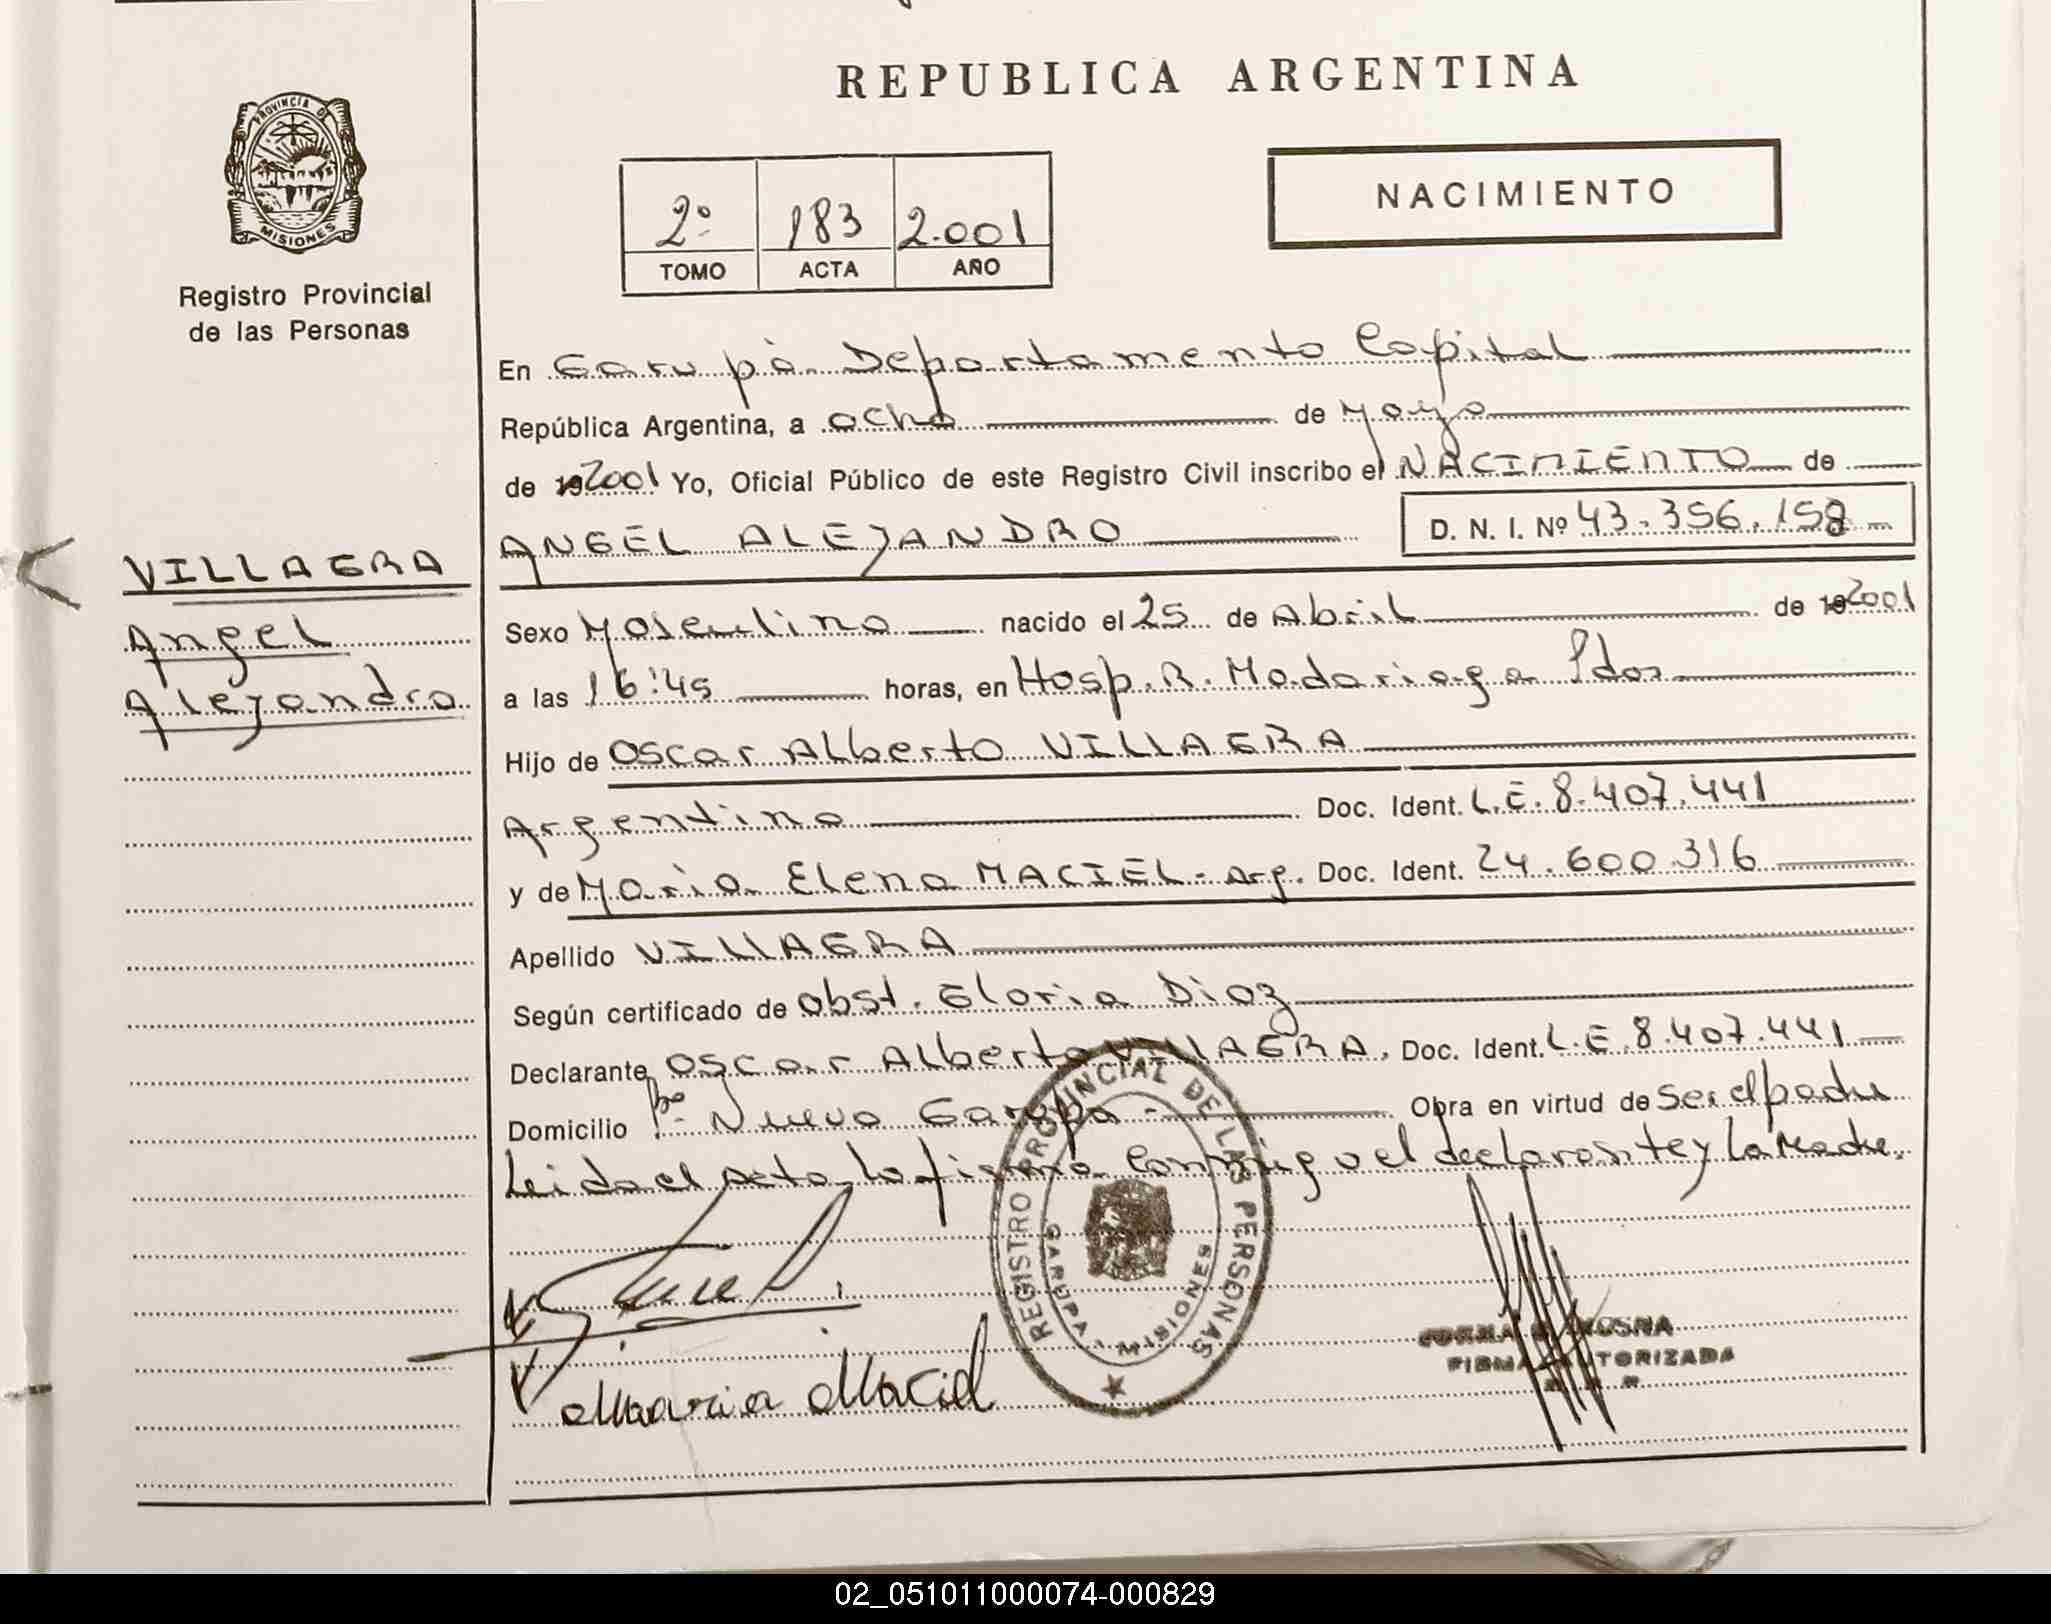 REPUBLICA ARGENTINA
PROVINCIA DE
MISIONES
Registro Provincial
de las Personas
2º 183 2.001
TOMO ACTA AÑO
NACIMIENTO
En Garupà Departamento Capital
República Argentina, a ocho de Mayo
de 19 2001 Yo, Oficial Público de este Registro Civil inscribo el NACIMIENTO de
ANGEL ALEJANDRO D. N. I. Nº 43.356.158
VILLAGRA
Angel
Alejandro
Sexo Masculino nacido el 25 de Abril de 19 2001
a las 16:45 horas, en Hosp. R. Madariaga Pdas
Hijo de Oscar Alberto VILLAGRA
Argentino Doc. Ident. L.E. 8.407.441
y de Maria Elena MACIEL - Arg. Doc. Ident. 24.600.316
Apellido VILLAGRA
Según certificado de Obst. Gloria Diaz
Declarante Oscar Alberto VILLAGRA, Doc. Ident. L.E. 8.407.441
Domicilio Bº Nuevo Garupa - Obra en virtud de ser el padre
Leida el acta, la firma conmigo el declarante y la Madre.
REGISTRO PROVINCIAL DE LAS PERSONAS
GARUPA - MISIONES
FIRMA AUTORIZADA
Maria Maciel
02_051011000074-000829